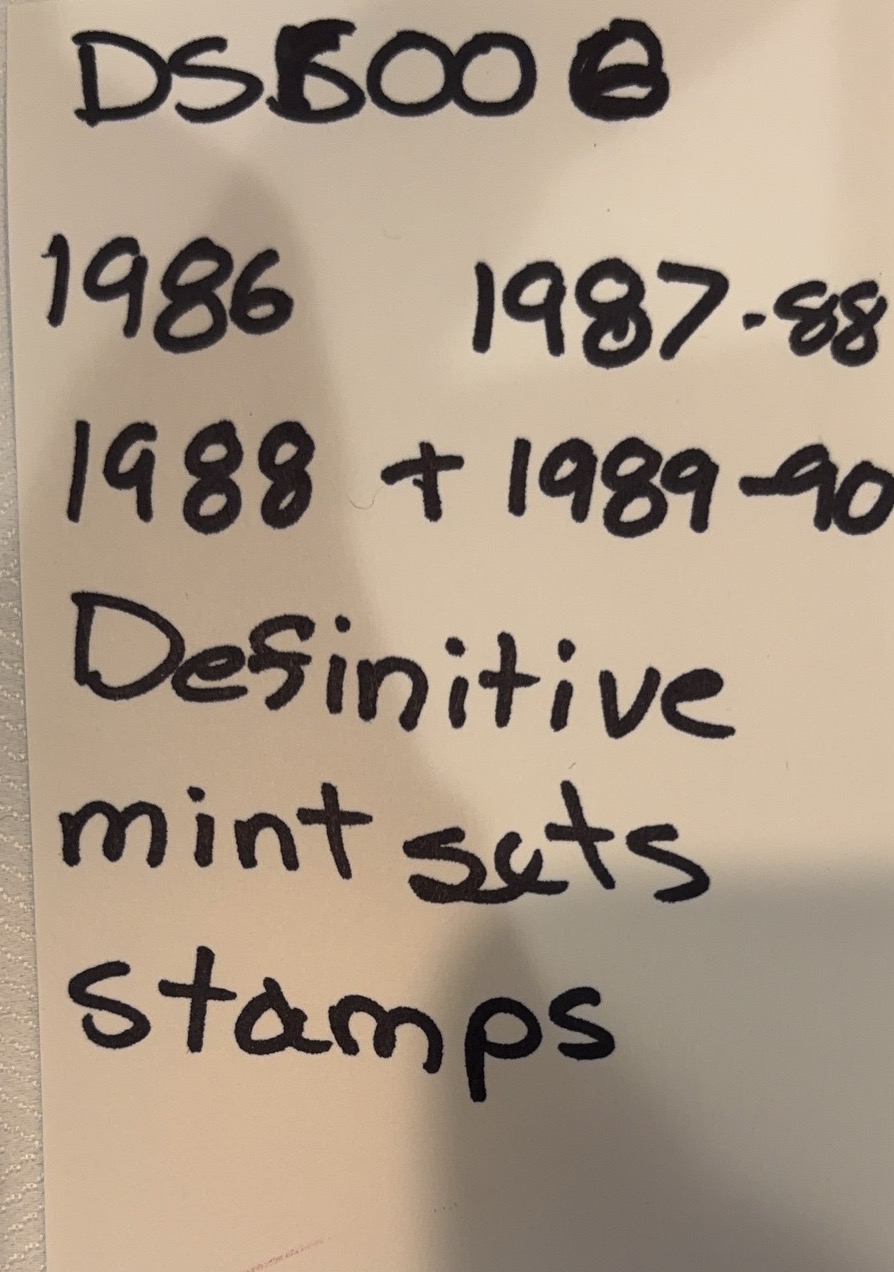 1986 1987-88
1988 + 1989-90
Definitive
mint sets
stamps